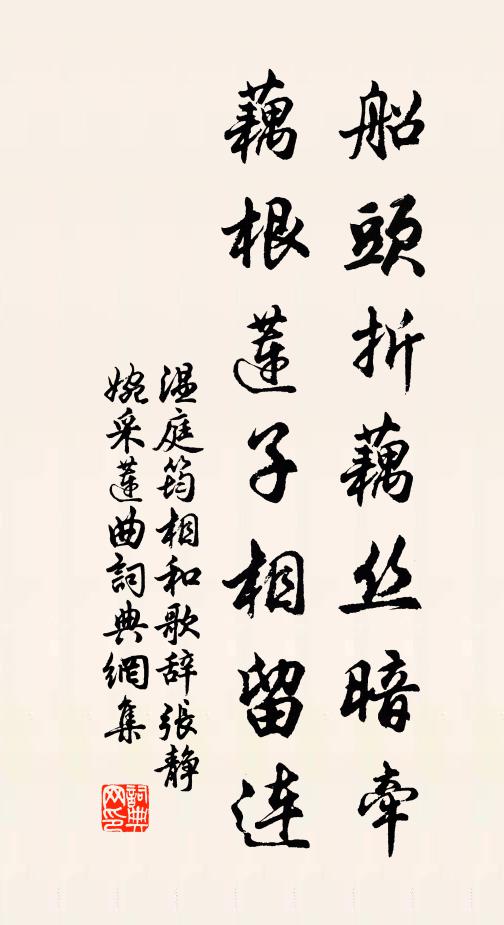 船頭折藕丝暗牵
藕根莲子相留连
温庭筠相和歌辞張静
婉采莲曲詞典網集
詞典网印